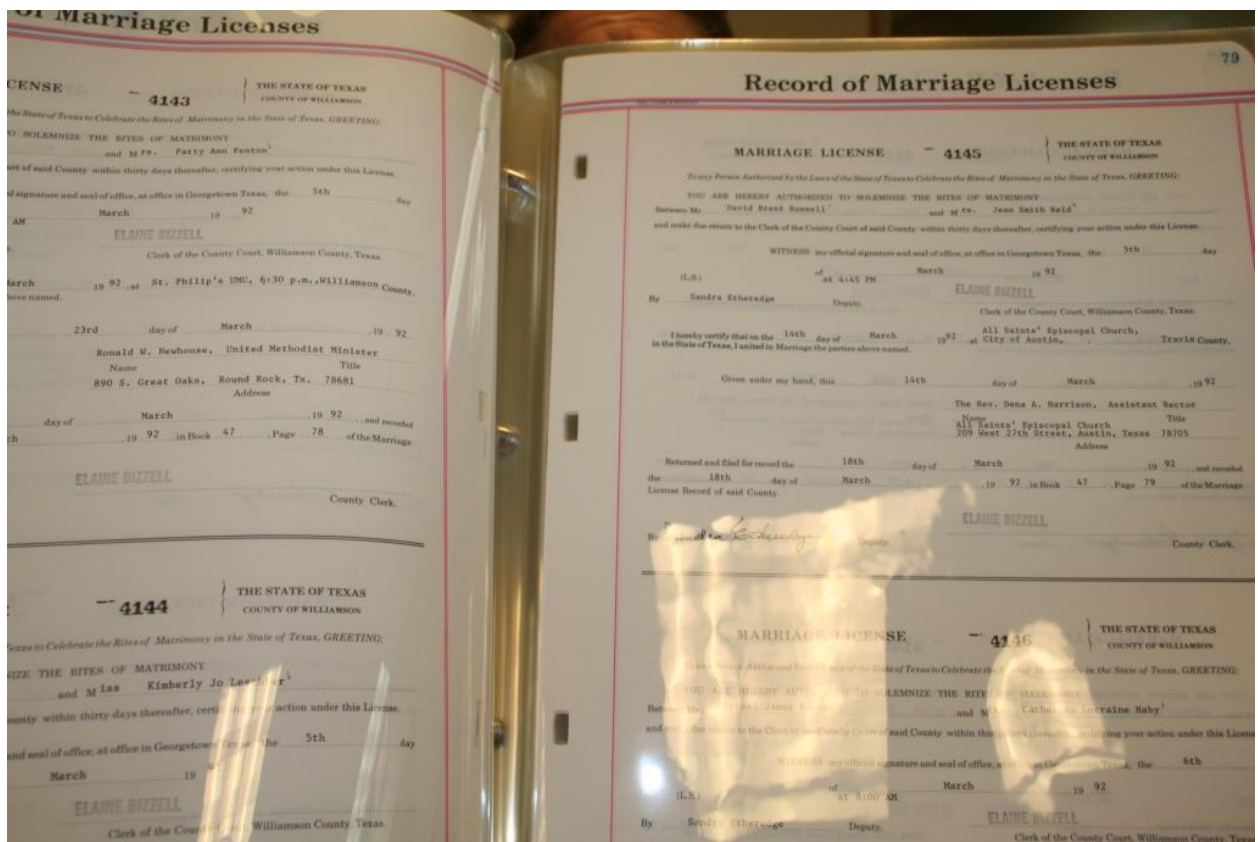 of Marriage Licenses
CENSE 4143 THE STATE OF TEXAS
COUNTY OF WILLIAMSON
the State of Texas to Celebrate the Rites of Matrimony in the State of Texas, GREETING:
O SOLEMNIZE THE RITES OF MATRIMONY
and Mrs. Patty Ann Fenton
of said County within thirty days thereafter, certifying your action under this License.
signature and seal of office, at office in Georgetown Texas, the 5th day
AM March 19 92
ELAINE BIZZELL
Clerk of the County Court, Williamson County, Texas.
March 19 92 , at St. Philip's UMC, 6:30 p.m.,Williamson County,
above named.
23rd day of March , 19 92
Ronald W. Newhouse, United Methodist Minister
Name Title
890 S. Great Oaks, Round Rock, Tx. 78681
Address
day of March , 19 92 , and recorded
, 19 92 , in Book 47 , Page 78 of the Marriage
ELAINE BIZZELL
County Clerk.
4144 THE STATE OF TEXAS
COUNTY OF WILLIAMSON
Texas to Celebrate the Rites of Matrimony in the State of Texas, GREETING:
NIZE THE RITES OF MATRIMONY
and Miss Kimberly Jo
county within thirty days thereafter, your action under this License.
and seal of office, at office in Georgetown the 5th day
March 19
ELAINE BIZZELL
Clerk of the County Court, Williamson County, Texas.
79
Record of Marriage Licenses
MARRIAGE LICENSE 4145 THE STATE OF TEXAS
COUNTY OF WILLIAMSON
To any Person Authorized by the Laws of the State of Texas to Celebrate the Rites of Matrimony in the State of Texas, GREETING:
YOU ARE HEREBY AUTHORIZED TO SOLEMNIZE THE RITES OF MATRIMONY
Between Mr. David Brent Russell and Mrs. Jean Smith Reid
and make due return to the Clerk of the County Court of said County within thirty days thereafter, certifying your action under this License.
WITNESS my official signature and seal of office, at office in Georgetown Texas, the 5th day
(L.S.) of March 19 92
at 4:45 PM
ELAINE BIZZELL
By Sandra Etheredge Deputy.
Clerk of the County Court, Williamson County, Texas.
I hereby certify that on the 14th day of March 19 92 , at All Saints' Episcopal Church, City of Austin, Travis County,
in the State of Texas, I united in Marriage the parties above named.
Given under my hand, this 14th day of March , 19 92
The Rev. Dena A. Harrison, Assistant Rector
Name Title
All Saints' Episcopal Church
209 West 27th Street, Austin, Texas 78705
Address
Returned and filed for record the 18th day of March , 19 92 , and recorded
the 18th day of March , 19 92 , in Book 47 , Page 79 of the Marriage
License Record of said County.
ELAINE BIZZELL
By Etheredge Deputy. County Clerk.
MARRIAGE LICENSE 4146 THE STATE OF TEXAS
COUNTY OF WILLIAMSON
Person Authorized by the of the State of Texas to Celebrate the of Matrimony in the State of Texas, GREETING:
YOU ARE HEREBY TO SOLEMNIZE THE RITES MATRIMONY
James and Lorraine Haby
and due return to the Clerk of the County Court of said County within certifying your action under this License
WITNESS my official signature and seal of office, Texas, the 6th
(L.S.) of March 19 92
at 8:00 AM
ELAINE BIZZELL
By Sandra Etheredge Deputy.
Clerk of the County Court, Williamson County, Texas